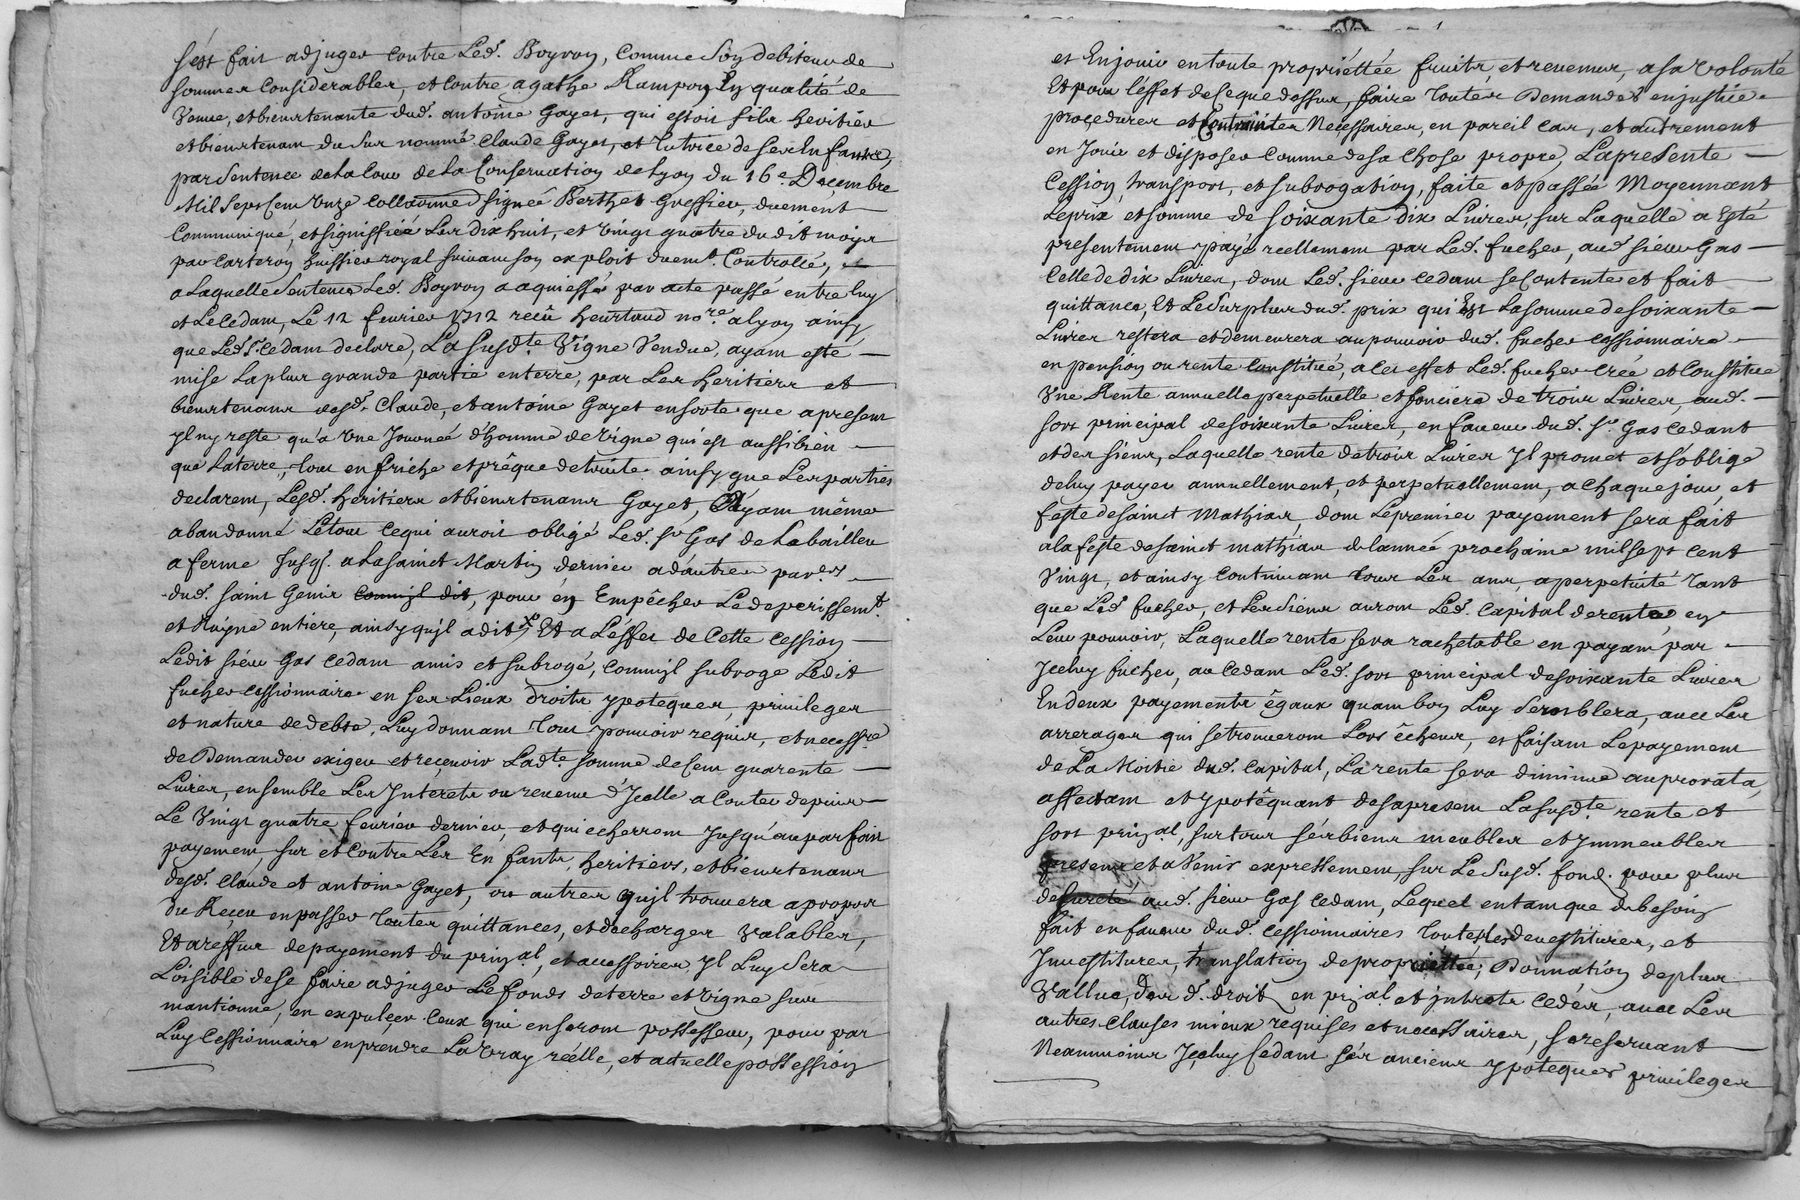 s'est fait adjuger contre Led. Boyron, Comme Son debiteur de
sommes Considerables, et contre agathe Rampon En qualité de
Veuve, et bientenante dud. antoine Gayet, qui estoit fils heritier
et bientenant du sus nommé Claude Gayet, et Tutrice de ses Enfants,
par Sentence de la Cour de La Conservation de Lyon du 16e. Decembre
Mil Sept Cent Onze collationné signée Berthet Greffier, duement
Communiqué, et signiffiée Les dix huit, et vingt quatre dudit moys
par Carteron huissier royal suivant son exploit duemt. Controllé,
a Laquelle Sentence Led. Boyron a aquiessé par acte passé entre luy
et Le Cedant, Le 12 fevrier 1712 receu heurtaud nore. a Lyon ainsy
que Led. Sr. Cedant declare, La susdte. Vigne Vendue, ayant esté
mise La plus grande partie en terre, par Les heritiers et
bientenants desd. Claude, et antoine Gayet en sorte que a present
Il n'y reste qu'a Une Journée d'homme de Vigne qui est aussi bien
que La terre, tout en friche et prêque detruite ainsy que Les parties
declarent, Lesd. heritiers et bientenants Gayet, Ayant même
abandonné Le tout ce qui auroit obligé Led. Sr Gas de La bailler
a ferme Jusq. a La Saint Martin dernier a d'autres parers
dud. Saint Genis comm'jl dit, pour en Empêcher Le deperissemt.
et Ruyne entiere, ainsy qu'jl a dit, Et a L'effet de Cette Cession
Ledit sieur Gas Cedant a mis et subrogé, comm'jl subroge Ledit
fucher Cessionnaire en ses Lieux droits ypoteques, privileges
et nature de debte, Luy donnant Tout pouvoir requis, et necessre
de Demander exiger et reçevoir Ladte. somme de Cent quarente
Livres, ensemble Les Interets ou revenu d'Jcelle a Conter depuis
Le Vingt quatre fevrier dernier, et qui echerront Jusqu'au parfait
payement, sur et contre Les Enfants, heritiers, et bientenants
desd. Claude et antoine Gayet, ou autres qu'jl trouvera a propos
du Reçeu en passer toutes quittances, et decharges Valables,
Et a reffus de payement du prinal, et accessoires Jl Luy Sera
Loisible de se faire adjuger Le fonds de terre et vigne sus
mantionné, en expulçer Ceux qui en seront possesseur, pour par
Luy Cessionnaire en prendre La Vray réelle, et actuelle possession
et En jouir en toute propriéttée fruits, et revenus, a sa Volonté
Et pour l'effet de Ce que dessus, faire toutes Demandes en justice
proçedures et Contraintes Necessaires, en pareil Cas, et autrement
en Jouir et disposer Comme de sa Chose propre, La presente
Cession, transport, et subrogation, faite et passée Moyennant
Le prix et somme de soixante dix Livres, sur Laquelle a Esté
presentement payé reellement par Led. fucher, aud. sieur Gas
Celle de dix Livres, dont Led. sieur Cedant se Contente et fait
quittance, Et Le Surplus dud. prix qui Est La somme de soixante
Livres restera et demeurera au pouvoir dud. fucher Cessionnaire
en pension ou rente Constituée, a Cet effet Led. fucher Crée et Constitue
Une Rente annuelle perpetuelle et fonciere de trois Livres, aud.
sort principal de soixante Livres, en faveur dud. Sr Gas Cedant
et des siens, Laquelle rente de trois Livres Jl promet et s'oblige
de luy payer annuellement, et perpetuellement, a Chaque jour, et
feste de Sainct Mathias, dont Le premier payement sera fait
a la feste de sainct mathias de L'année prochaine mil sept cent
Vingt, et ainsy Continuant tous Les ans, a perpetuité tant
que Led fucher, et Les Siens auront Led. Capital de rente en
Leur pouvoir, Laquelle rente sera rachetable en payant par
Jceluy fucher, au Cedant Led. sort principal de soixante Livres
En deux payements égaux quant bon Luy Semblera, avec Les
arrerages qui se trouveront Lors êcheus, et faisant Le payement
de La Moitie dud. Capital, La rente sera diminué au prorata,
affectant et ypotêquant des a present La susdte. rente et
sort prinal, sur tous sés biens meubles et Jmmeubles
presens et a Venir expressement, sur Le Susd. fond. pour plus
de sureté aud. sieur Gas Cedant, Lequel en tant que de besoin
fait en faveur dud. Cessionnaires toutes Les devestitures, et
Jnvestitures, translation de propriettée, Donnation de plus
Vallue, des d. droit en prinal et jntrets Cedés, avec Les
autres Clauses mieux requises et necessaires, se reservant
Neanmoins Jceluy Cedant sés anciens ypoteques privileges